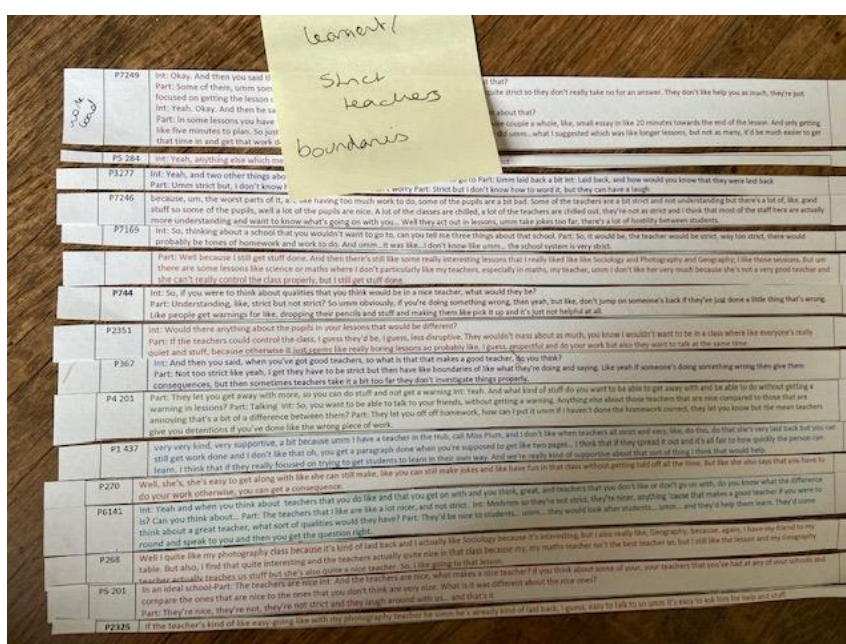 lenient /
Strict
teachers
boundaries
quite good
P7249 Int: Okay. And then you said t
Part: Some of them, umm som quite strict so they don't really take no for an answer. They don't like help you as much, they're just
focused on getting the lesson
Int: Yeah. Okay. And then he sa about that?
Part: In some lessons you have couple a whole, like, small essay in like 20 minutes towards the end of the lesson. And only getting
like five minutes to plan. So just did umm... what I suggested which was like longer lessons, but not as many, it'd be much easier to get
that time in and get that work d
PS 284 Int: Yeah, anything else which me
P3277 Int: Yeah, and two other things abo go to Part: Umm laid back a bit Int: Laid back, and how would you know that they were laid back
Part: Umm strict but, I don't know h worry Part: Strict but I don't know how to word it, but they can have a laugh
P7246 because, um, the worst parts of it, a having too much work to do, some of the pupils are a bit bad. Some of the teachers are a bit strict and not understanding but there's a lot of, like, good
stuff so some of the pupils, well a lot of the pupils are nice. A lot of the classes are chilled, a lot of the teachers are chilled out, they're not as strict and i think that most of the staff here are actually
more understanding and want to know what's going on with you... Well they act out in lessons, umm take jokes too far, there's a lot of hostility between students.
P7169 Int: So, thinking about a school that you wouldn't want to go to, can you tell me three things about that school. Part: So, it would be, the teacher would be strict, way too strict, there would
probably be tones of homework and work to do. And umm...it was like...I don't know like umm... the school system is very strict.
Part: Well because I still get stuff done. And then there's still like some really interesting lessons that I really liked like like Sociology and Photography and Geography, I like those sessions. But um
there are some lessons like science or maths where I don't particularly like my teachers, especially in maths, my teacher, umm I don't like her very much because she's not a very good teacher and
she can't really control the class properly, but I still get stuff done
P744 Int: So, if you were to think about qualities that you think would be in a nice teacher, what would they be?
Part: Understanding, like, strict but not strict? So umm obviously, if you're doing something wrong, then yeah, but like, don't jump on someone's back if they've just done a little thing that's wrong.
Like people get warnings for like, dropping their pencils and stuff and making them like pick it up and it's just not helpful at all.
P2351 Int: Would there anything about the pupils in your lessons that would be different?
Part: If the teachers could control the class, I guess they'd be, I guess, less disruptive. They wouldn't mess about as much, you know I wouldn't want to be in a class where like everyone's really
quiet and stuff, because otherwise it just seems like really boring lessons so probably like, I guess, respectful and do your work but also they want to talk at the same time.
P367 Int: And then you said, when you've got good teachers, so what is that that makes a good teacher, do you think?
Part: Not too strict like yeah, I get they have to be strict but then have like boundaries of like what they're doing and saying. Like yeah if someone's doing something wrong then give them
consequences, but then sometimes teachers take it a bit too far they don't investigate things properly.
P4 201 Part: They let you get away with more, so you can do stuff and not get a warning Int: Yeah. And what kind of stuff do you want to be able to get away with and be able to do without getting a
warning in lessons? Part: Talking Int: So, you want to be able to talk to your friends, without getting a warning. Anything else about those teachers that are nice compared to those that are
annoying that's a bit of a difference between them? Part: They let you off off homework, how can I put it umm if I haven't done the homework correct, they let you know but the mean teachers
give you detentions if you've done like the wrong piece of work.
P1 437 very very kind, very supportive, a bit because umm I have a teacher in the Hub, call Miss Plum, and I don't like when teachers all strict and very, like, do this, do that she's very laid back but you can
still get work done and I don't like that oh, you get a paragraph done when you're supposed to get like two pages... I think that if they spread it out and it's all fair to how quickly the person can
learn. I think that if they really focused on trying to get students to learn in their own way. And we're really kind of supportive about that sort of thing I think that would help.
P270 Well, she's, she's easy to get along with like she can still make, like you can still make jokes and like have fun in that class without getting told off all the time. But like she also says that you have to
do your work otherwise, you can get a consequence.
P6141 Int: Yeah and when you think about teachers that you do like and that you get on with and you think, great, and teachers that you don't like or don't go on with, do you know what the difference
is? Can you think about... Part: The teachers that I like are like a lot nicer, and not strict. Int: Mmhmm so they're not strict, they're nicer, anything 'cause that makes a good teacher if you were to
think about a great teacher, what sort of qualities would they have? Part: They'd be nice to students... umm... they would look after students.. umm... and they'd help them learn. They'd come
round and speak to you and then you get the question right.
P268 Well I quite like my photography class because it's kind of laid back and I actually like Sociology because it's interesting, but I also really like, Geography, because, again, I have my friend to my
table. But also, I find that quite interesting and the teachers actually quite nice in that class because my, my maths teacher isn't the best teacher so, but I still like the lesson and my Geography
teacher actually teaches us stuff but she's also quite a nice teacher. So, I like going to that lesson.
PS 201 In an ideal school-Part: The teachers are nice Int: And the teachers are nice, what makes a nice teacher? If you think about some of your, your teachers that you've had at any of your schools and
compare the ones that are nice to the ones that you don't think are very nice. What is it was different about the nice ones?
Part: They're nice, they're not, they're not strict and they laugh around with us... and that's it
P2325 If the teacher's kind of like easy-going like with my photography teacher he umm he's already kind of laid back, I guess, easy to talk to so umm it's easy to ask him for help and stuff.